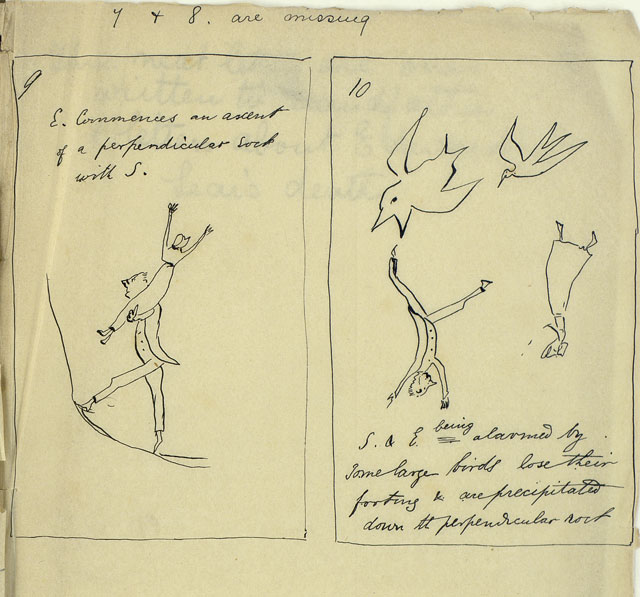 7 & 8. are missing
9
E. Commences an ascent
of a perpendicular rock
with S.
10
S. & E. being alarmed by
some large birds lose their
footing & are precipitated
down th perpendicular rock